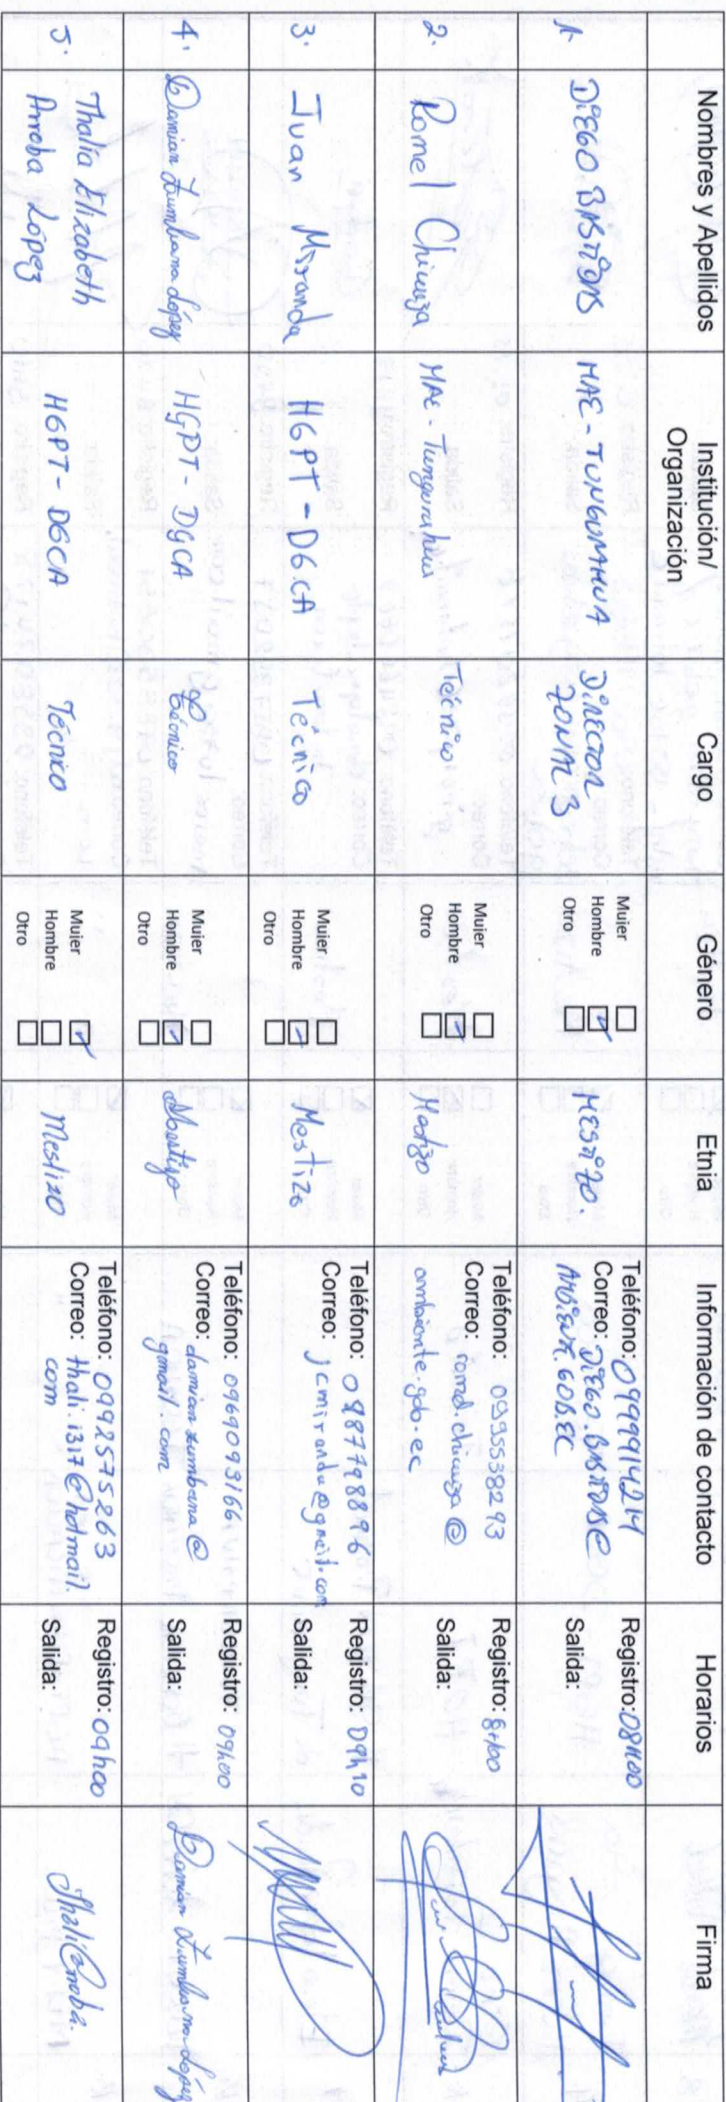 Nombres y Apellidos
Institución/
Organización
Cargo
Género
Etnia
Información de contacto
Horarios
Firma
1.
DIEGO BASTIDAS
MAE - TUNGURAHUA
DIRECTOR
ZONAL 3
Mujer
Hombre
Otro
MESTIZO.
Teléfono: 0999914214
Correo: DIEGO.BASTIDAS@
AMBIENTE.GOB.EC
Registro: 08H00
Salida:
2.
Romel Chicaiza
MAE - Tungurahua
Técnico
Mujer
Hombre
Otro
Mestizo
Teléfono: 0995538293
Correo: romel.chicaiza@
ambiente.gob.ec
Registro: 8H00
Salida:
3.
Juan Miranda
HGPT - DGCA
Técnico
Mujer
Hombre
Otro
Mestizo
Teléfono: 0987798896
Correo: jcmiranda@gmail.com
Registro: 09h10
Salida:
4.
Damian Zumbana López
HGPT - DGCA
Técnico
Mujer
Hombre
Otro
Mestizo
Teléfono: 0969093166
Correo: damian.zumbana@
gmail.com
Registro: 09h00
Salida:
Damian Zumbana López
5.
Thalía Elizabeth
Arroba López
HGPT - DGCA
Técnico
Mujer
Hombre
Otro
Mestizo
Teléfono: 0992575263
Correo: thali.1317@hotmail.
com
Registro: 09h00
Salida: